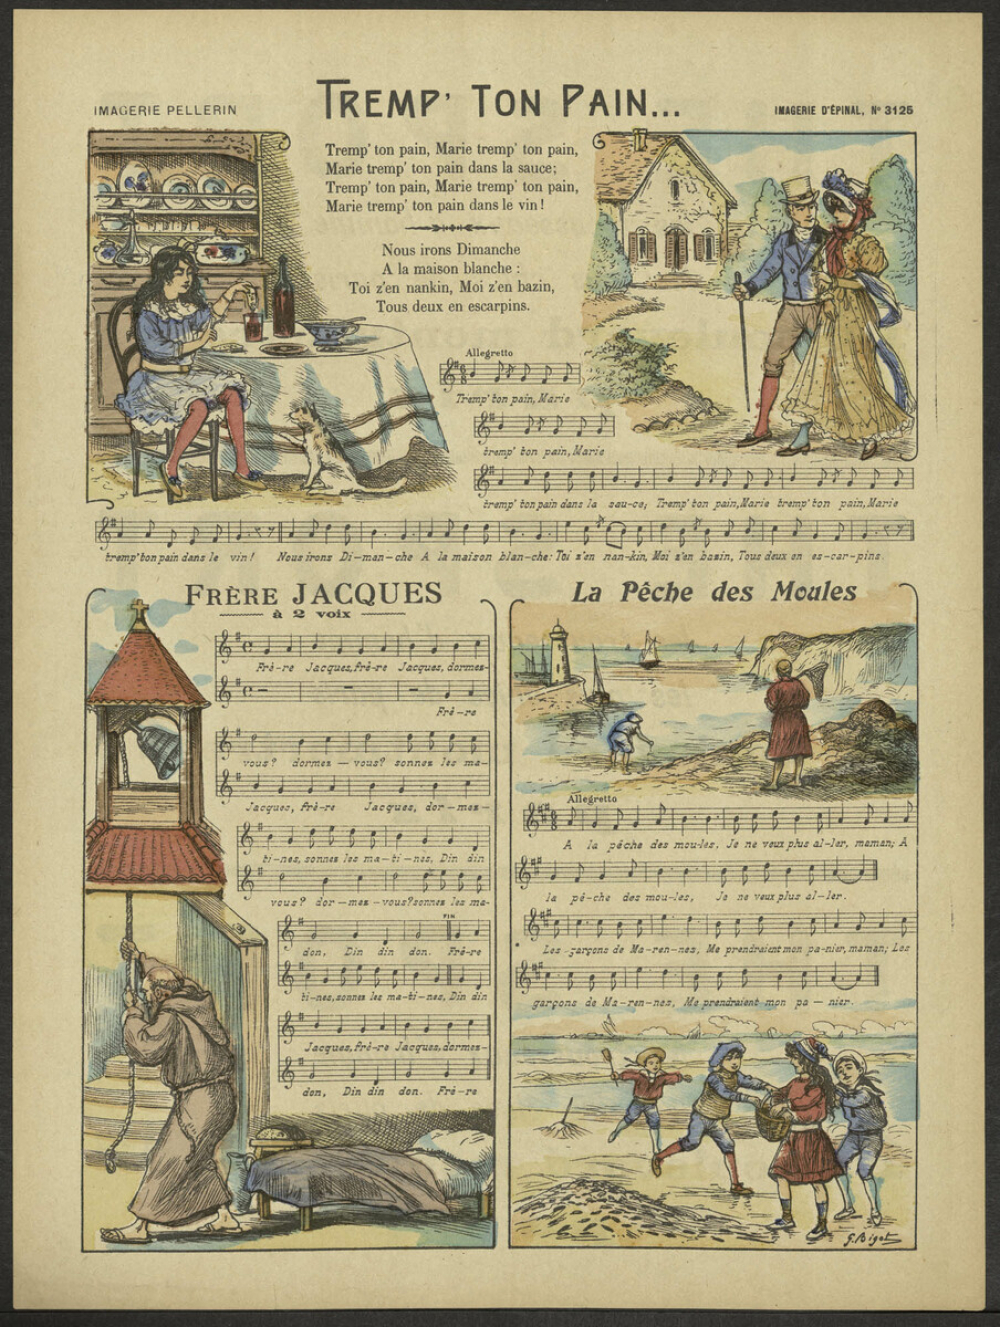 IMAGERIE PELLERIN
TREMP' TON PAIN...
IMAGERIE D'ÉPINAL, Nº 3125
Tremp' ton pain, Marie tremp' ton pain,
Marie tremp' ton pain dans la sauce;
Tremp' ton pain, Marie tremp' ton pain,
Marie tremp' ton pain dans le vin!
Nous irons Dimanche
A la maison blanche :
Toi z'en nankin, Moi z'en bazin,
Tous deux en escarpins.
Allegretto
Tremp' ton pain, Marie
tremp' ton pain, Marie
tremp' ton pain dans la sau-ce; Tremp' ton pain, Marie tremp' ton pain, Marie
tremp' ton pain dans le vin! Nous irons Di-man-che A la maison blan-che: Toi z'en nan-kin, Moi z'en bazin, Tous deux en es-car-pins.
FRÈRE JACQUES
à 2 voix
Frè-re Jacques, frè-re Jacques, dormez-
Frè-re
vous? dormez-vous? sonnez les ma-
Jacques, frè-re Jacques, dor-mez-
ti-nes, sonnez les ma-ti-nes, Din din
vous? dor-mez-vous? sonnez les ma-
FIN
don, Din din don. Frè-re
ti-nes, sonnez les ma-ti-nes, Din din
Jacques, frè-re Jacques, dormez-
don, Din din don. Frè-re
La Pêche des Moules
Allegretto
A la pêche des mou-les, Je ne veux plus al-ler, maman; A
la pê-che des mou-les, Je ne veux plus al-ler.
Les garçons de Ma-ren-nes, Me prendraient mon pa-nier, maman; Les
garçons de Ma-ren-nes, Me prendraient mon pa-nier.
G. Bigot